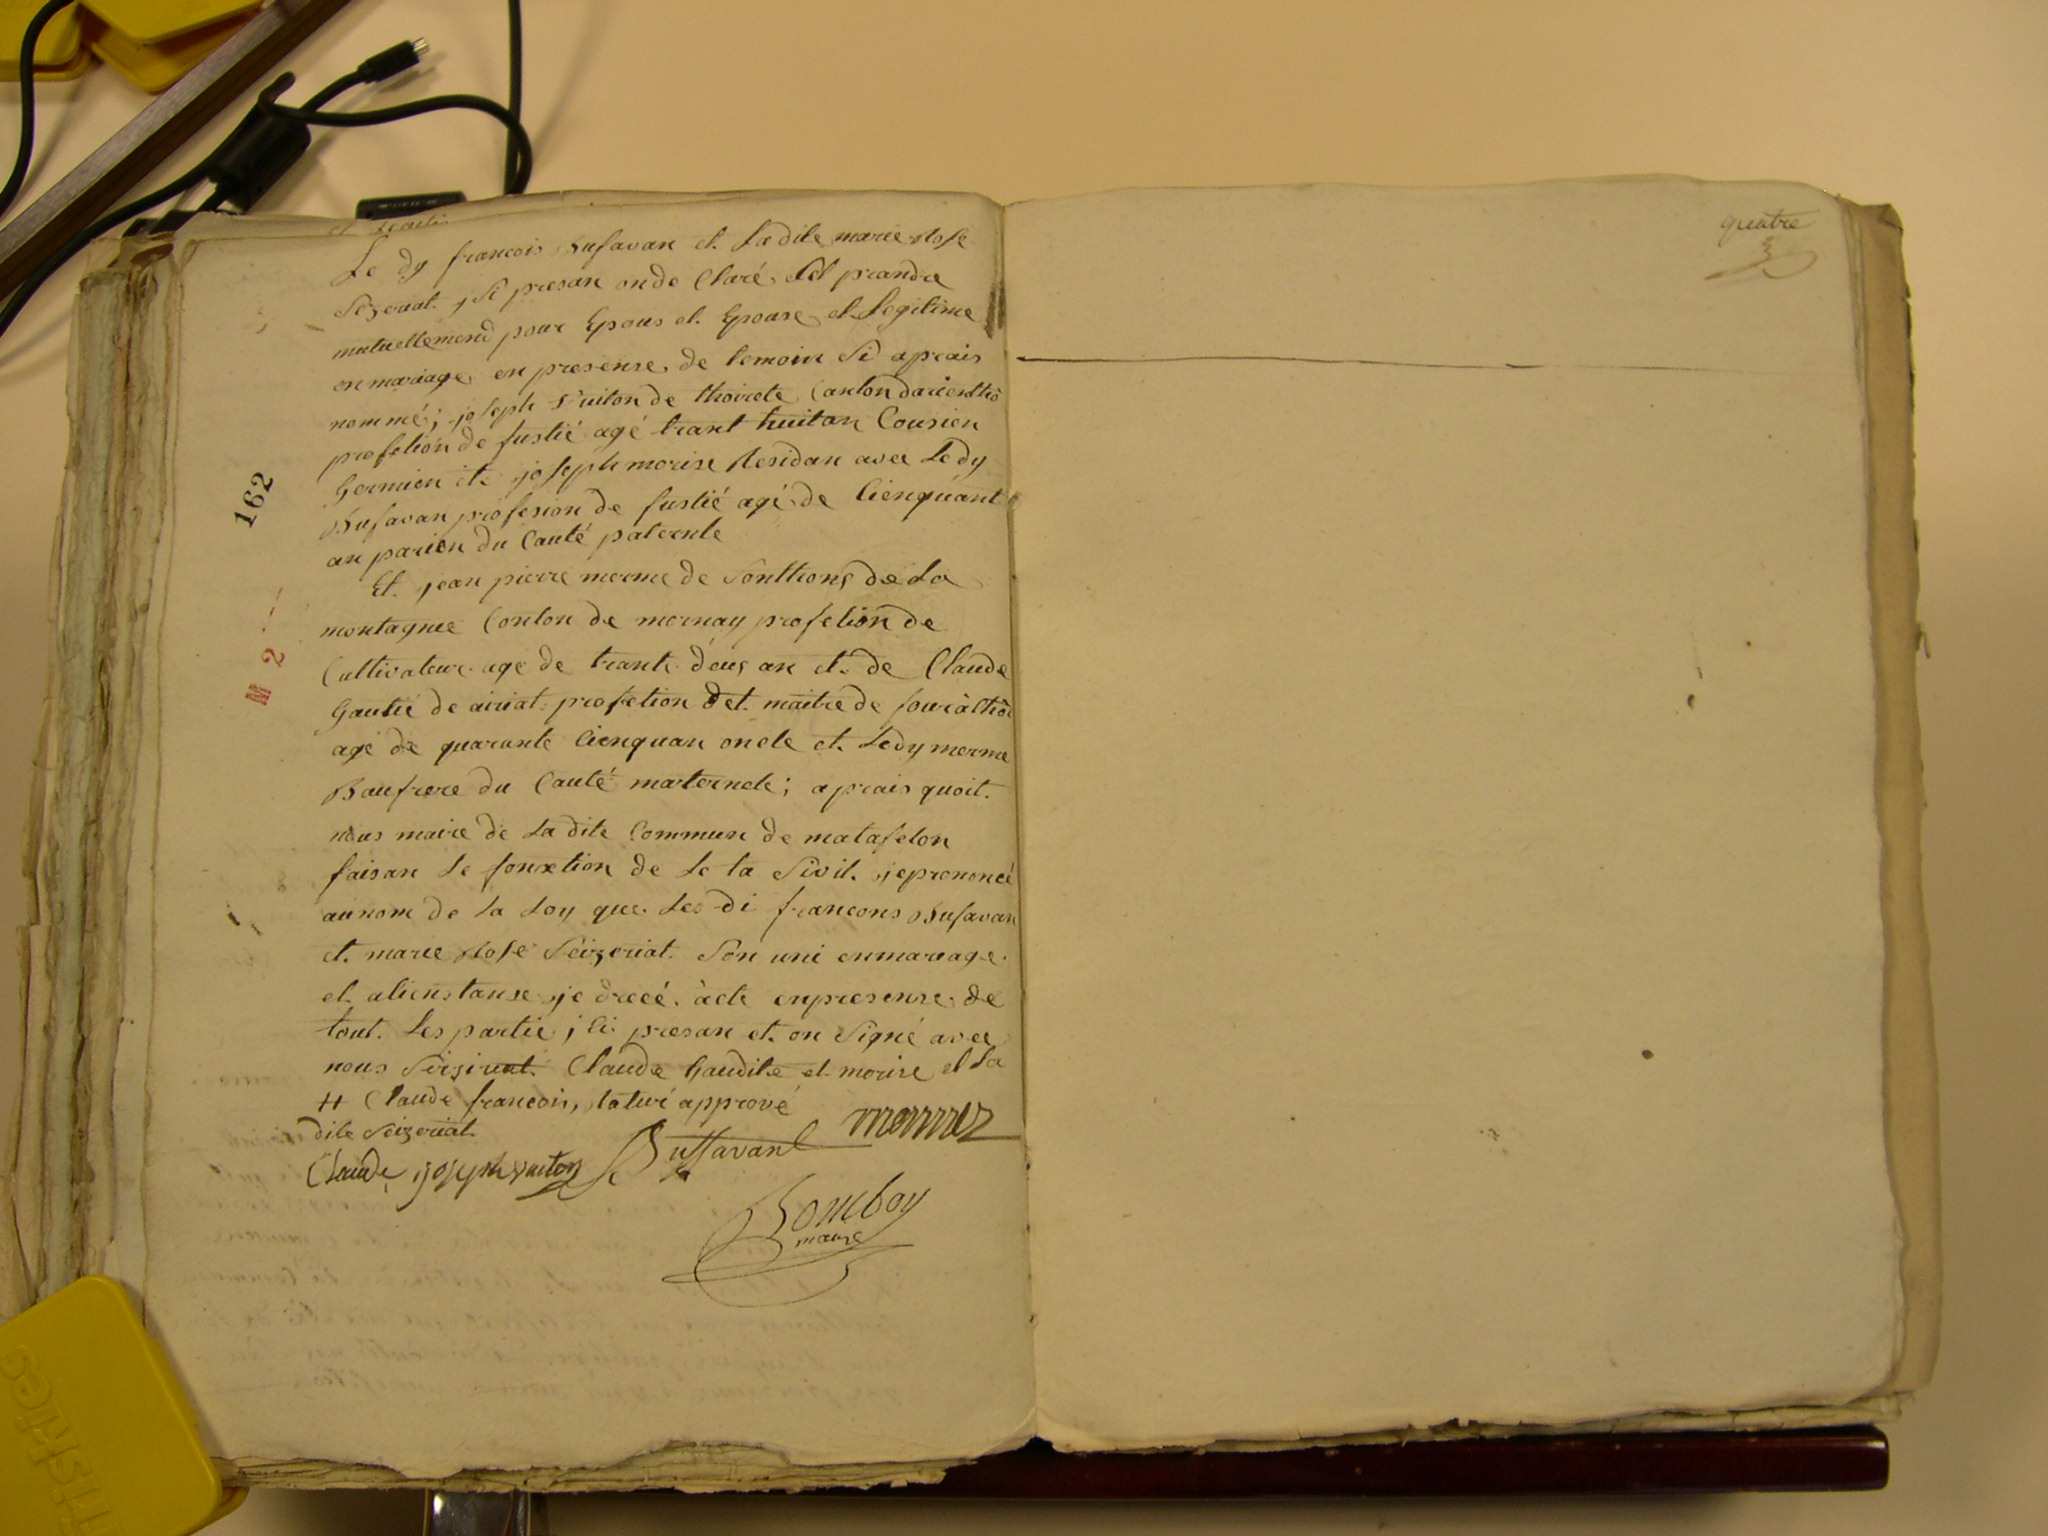 Le dy francois Bufavan et La dite marie Rose
Sezeriat y Si presan onde Claré Let prandre
mutuellemend pour Epous et Epouse et Legitime
en mariage en presense de temoin Si apreais
nommé; joseph Vuiton de thoirete Canton darientho
profetion de fustié agé trant huitan Cousien
Germien et joseph morise Residan avec Le dy
Bufavan profesion de fustié agé de Cienquant
an parien du Cauté paternle
Et jean pierre merme de de La
montagnee Conton de mornay profetion de
Cultivateur age de trante deus an et de Claude
Gautié de airiat profetion det maitre de
agé de quarante Cienquan oncle et Ledy merme
Baufrere du Cauté maternele; apreais quoit
nous maire de La dite Commun de matafelon
faisan Le fonxtion de Le ta Sivil je prononcé
au nom de La Loy que Les di francons Bufavan
et marie Rose Seizeriat Son uni enmareage
et alienstanse je drecé acte enpresense de
tout Les partie; ici presan et on Signé avec
nous Claude Gaudite et morise et La
# Claude francois, Raturé apprové
dite Seizeriat
Claude joseph vuiton Buffavant
Bomboy
maire
162
2
quatre